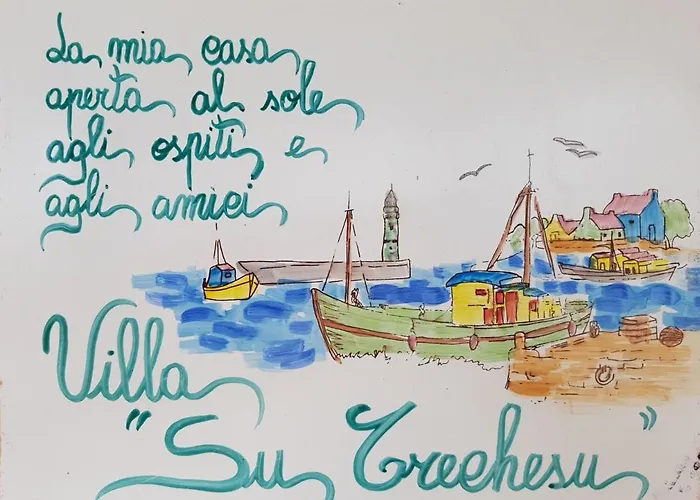 La mia casa
aperta al sole
agli ospiti e
agli amici
Villa
"Su Crechesu"